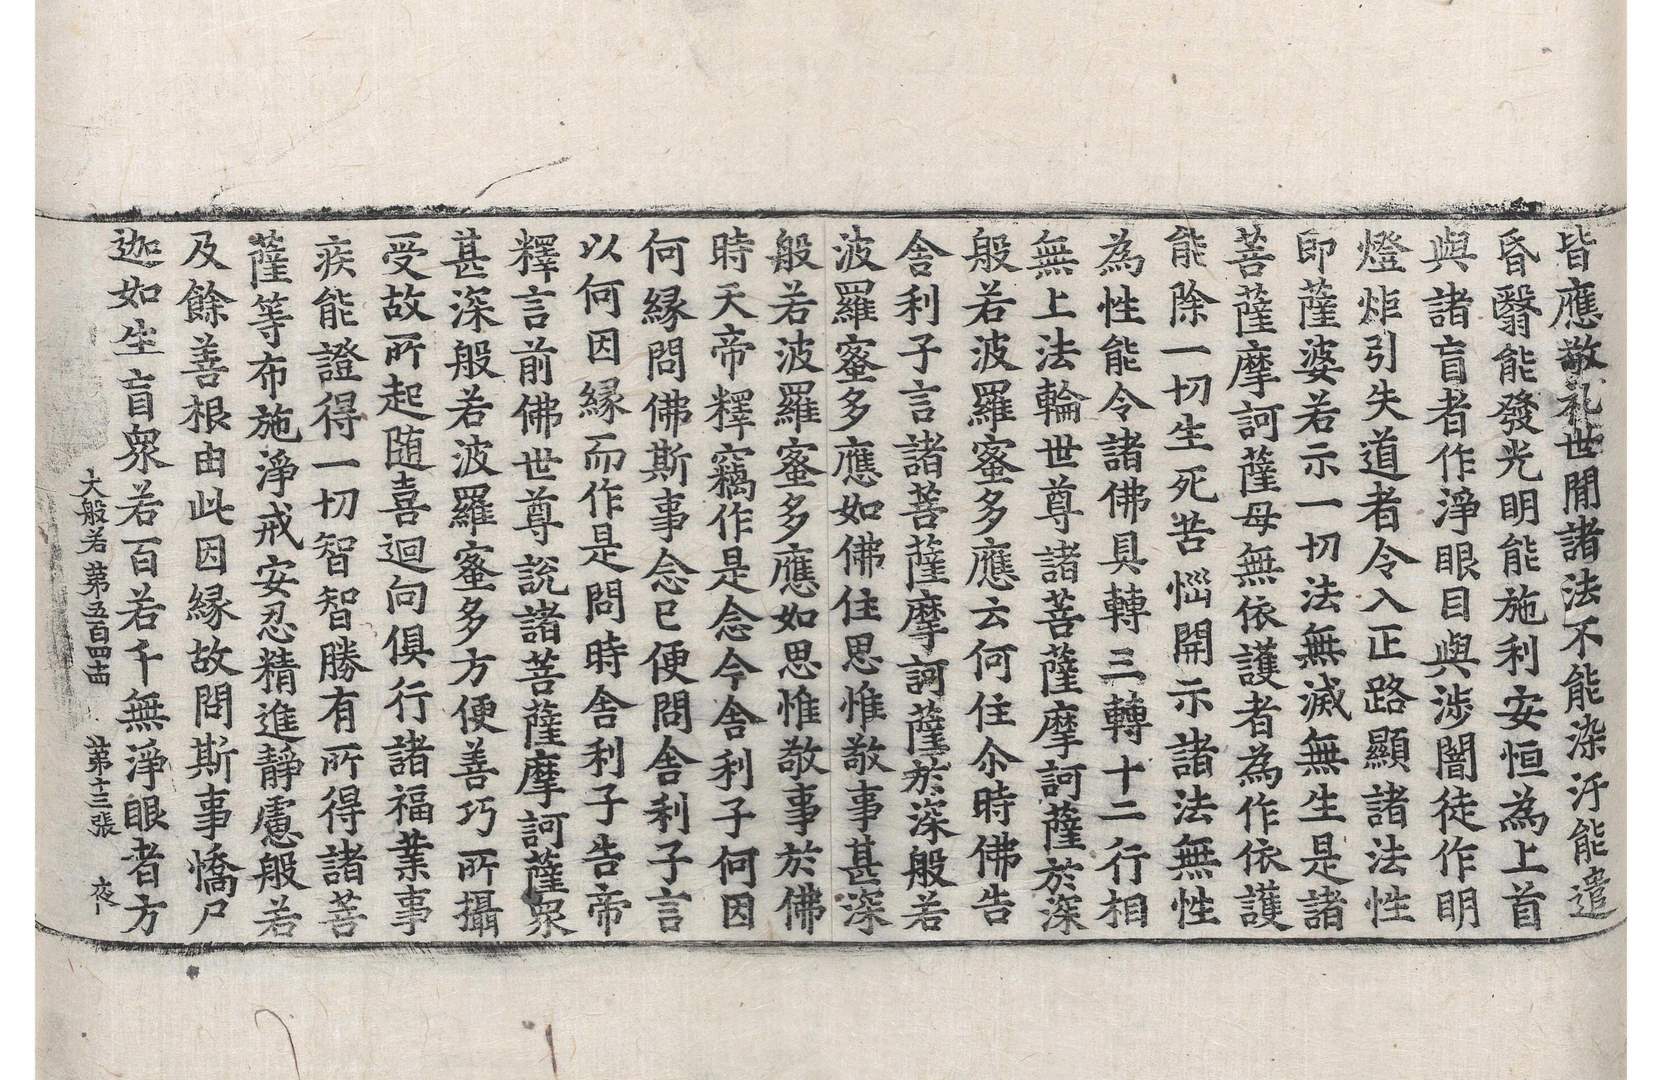 皆應敬礼世閒諸法不能染汙能遣
昏翳能發光明能施利安恒為上首
與諸盲者作淨眼目與涉闇徒作明
燈炬引失道者令入正路顯諸法性
即薩婆若示一切法無滅無生是諸
菩薩摩訶薩母無依護者為作依護
能除一切生死苦惱開示諸法無性
為性能令諸佛具轉三轉十二行相
無上法輪世尊諸菩薩摩訶薩於深
般若波羅蜜多應云何住尒時佛告
舍利子言諸菩薩摩訶薩於深般若
波羅蜜多應如佛住思惟敬事甚深
般若波羅蜜多應如思惟敬事於佛
時天帝釋竊作是念今舍利子何因
何縁問佛斯事念已便問舍利子言
以何因縁而作是問時舍利子告帝
釋言前佛世尊說諸菩薩摩訶薩衆
甚深般若波羅蜜多方便善巧所攝
受故所起随喜迴向俱行諸福業事
疾能證得一切智智勝有所得諸菩
薩等布施淨戒安忍精進靜慮般若
及餘善根由此因縁故問斯事憍尸
迦如生盲衆若百若千無淨眼者方
大般若第五百四 第十三張 夜